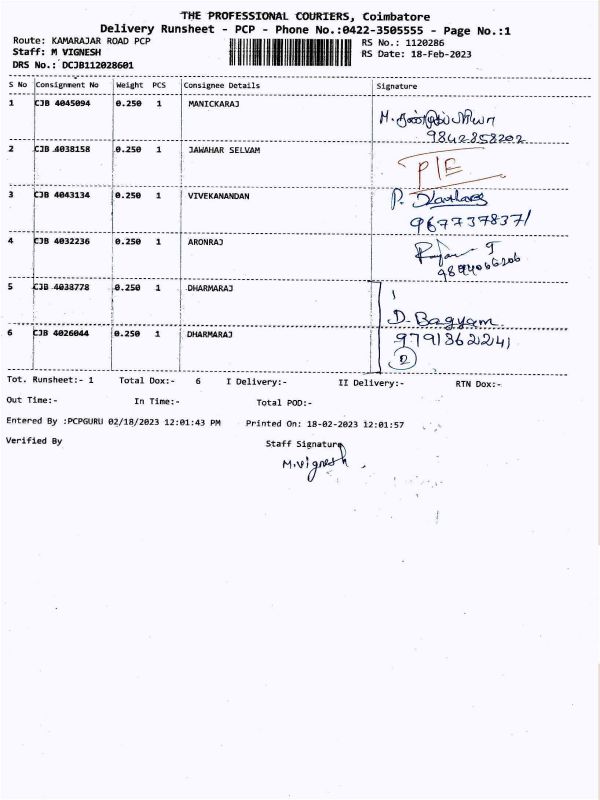 THE PROFESSIONAL COURIERS, Coimbatore
Delivery Runsheet - PCP - Phone No.:0422-3505555 - Page No.:1
Route: KAMARAJAR ROAD PCP RS No.: 1120286
Staff: M VIGNESH RS Date: 18-Feb-2023
DRS No.: DCJB112028601
S No Consignment No Weight PCS Consignee Details Signature
1 CJB 4045094 0.250 1 MANICKARAJ M.
9842858202
2 CJB 4038158 0.250 1 JAWAHAR SELVAM P/E
3 CJB 4043134 0.250 1 VIVEKANANDAN P.
9677378371
4 CJB 4032236 0.250 1 ARONRAJ
9894066206
5 CJB 4038778 0.250 1 DHARMARAJ D. Bagyam
6 CJB 4026044 0.250 1 DHARMARAJ 9791362241
2
Tot. Runsheet:- 1 Total Dox:- 6 I Delivery:- II Delivery:- RTN Dox:-
Out Time:- In Time:- Total POD:-
Entered By :PCPGURU 02/18/2023 12:01:43 PM Printed On: 18-02-2023 12:01:57
Verified By Staff Signature
M.Vignesh